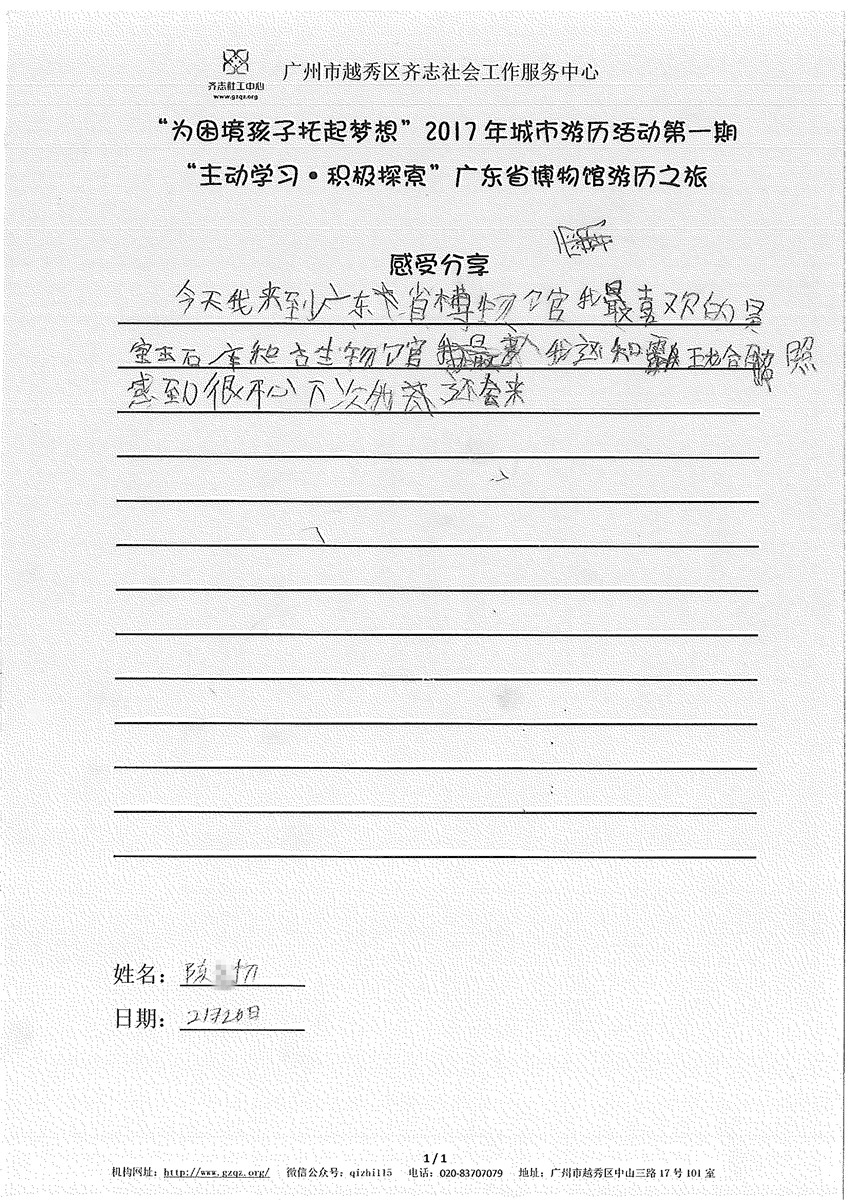 齐志社工中心
www.gzqz.org
广州市越秀区齐志社会工作服务中心
“为困境孩子托起梦想”2017年城市游历活动第一期
“主动学习·积极探索”广东省博物馆游历之旅
感受分享
今天我来到广东省博物官我最喜欢的是
宝玉石 和古生物官 我还知 照
感到很开心下次 还会来
姓名：
日期：2月20日
1/1
机构网址：http://www.gzqz.org/ 微信公众号：qizhi115 电话：020-83707079 地址：广州市越秀区中山三路17号101室